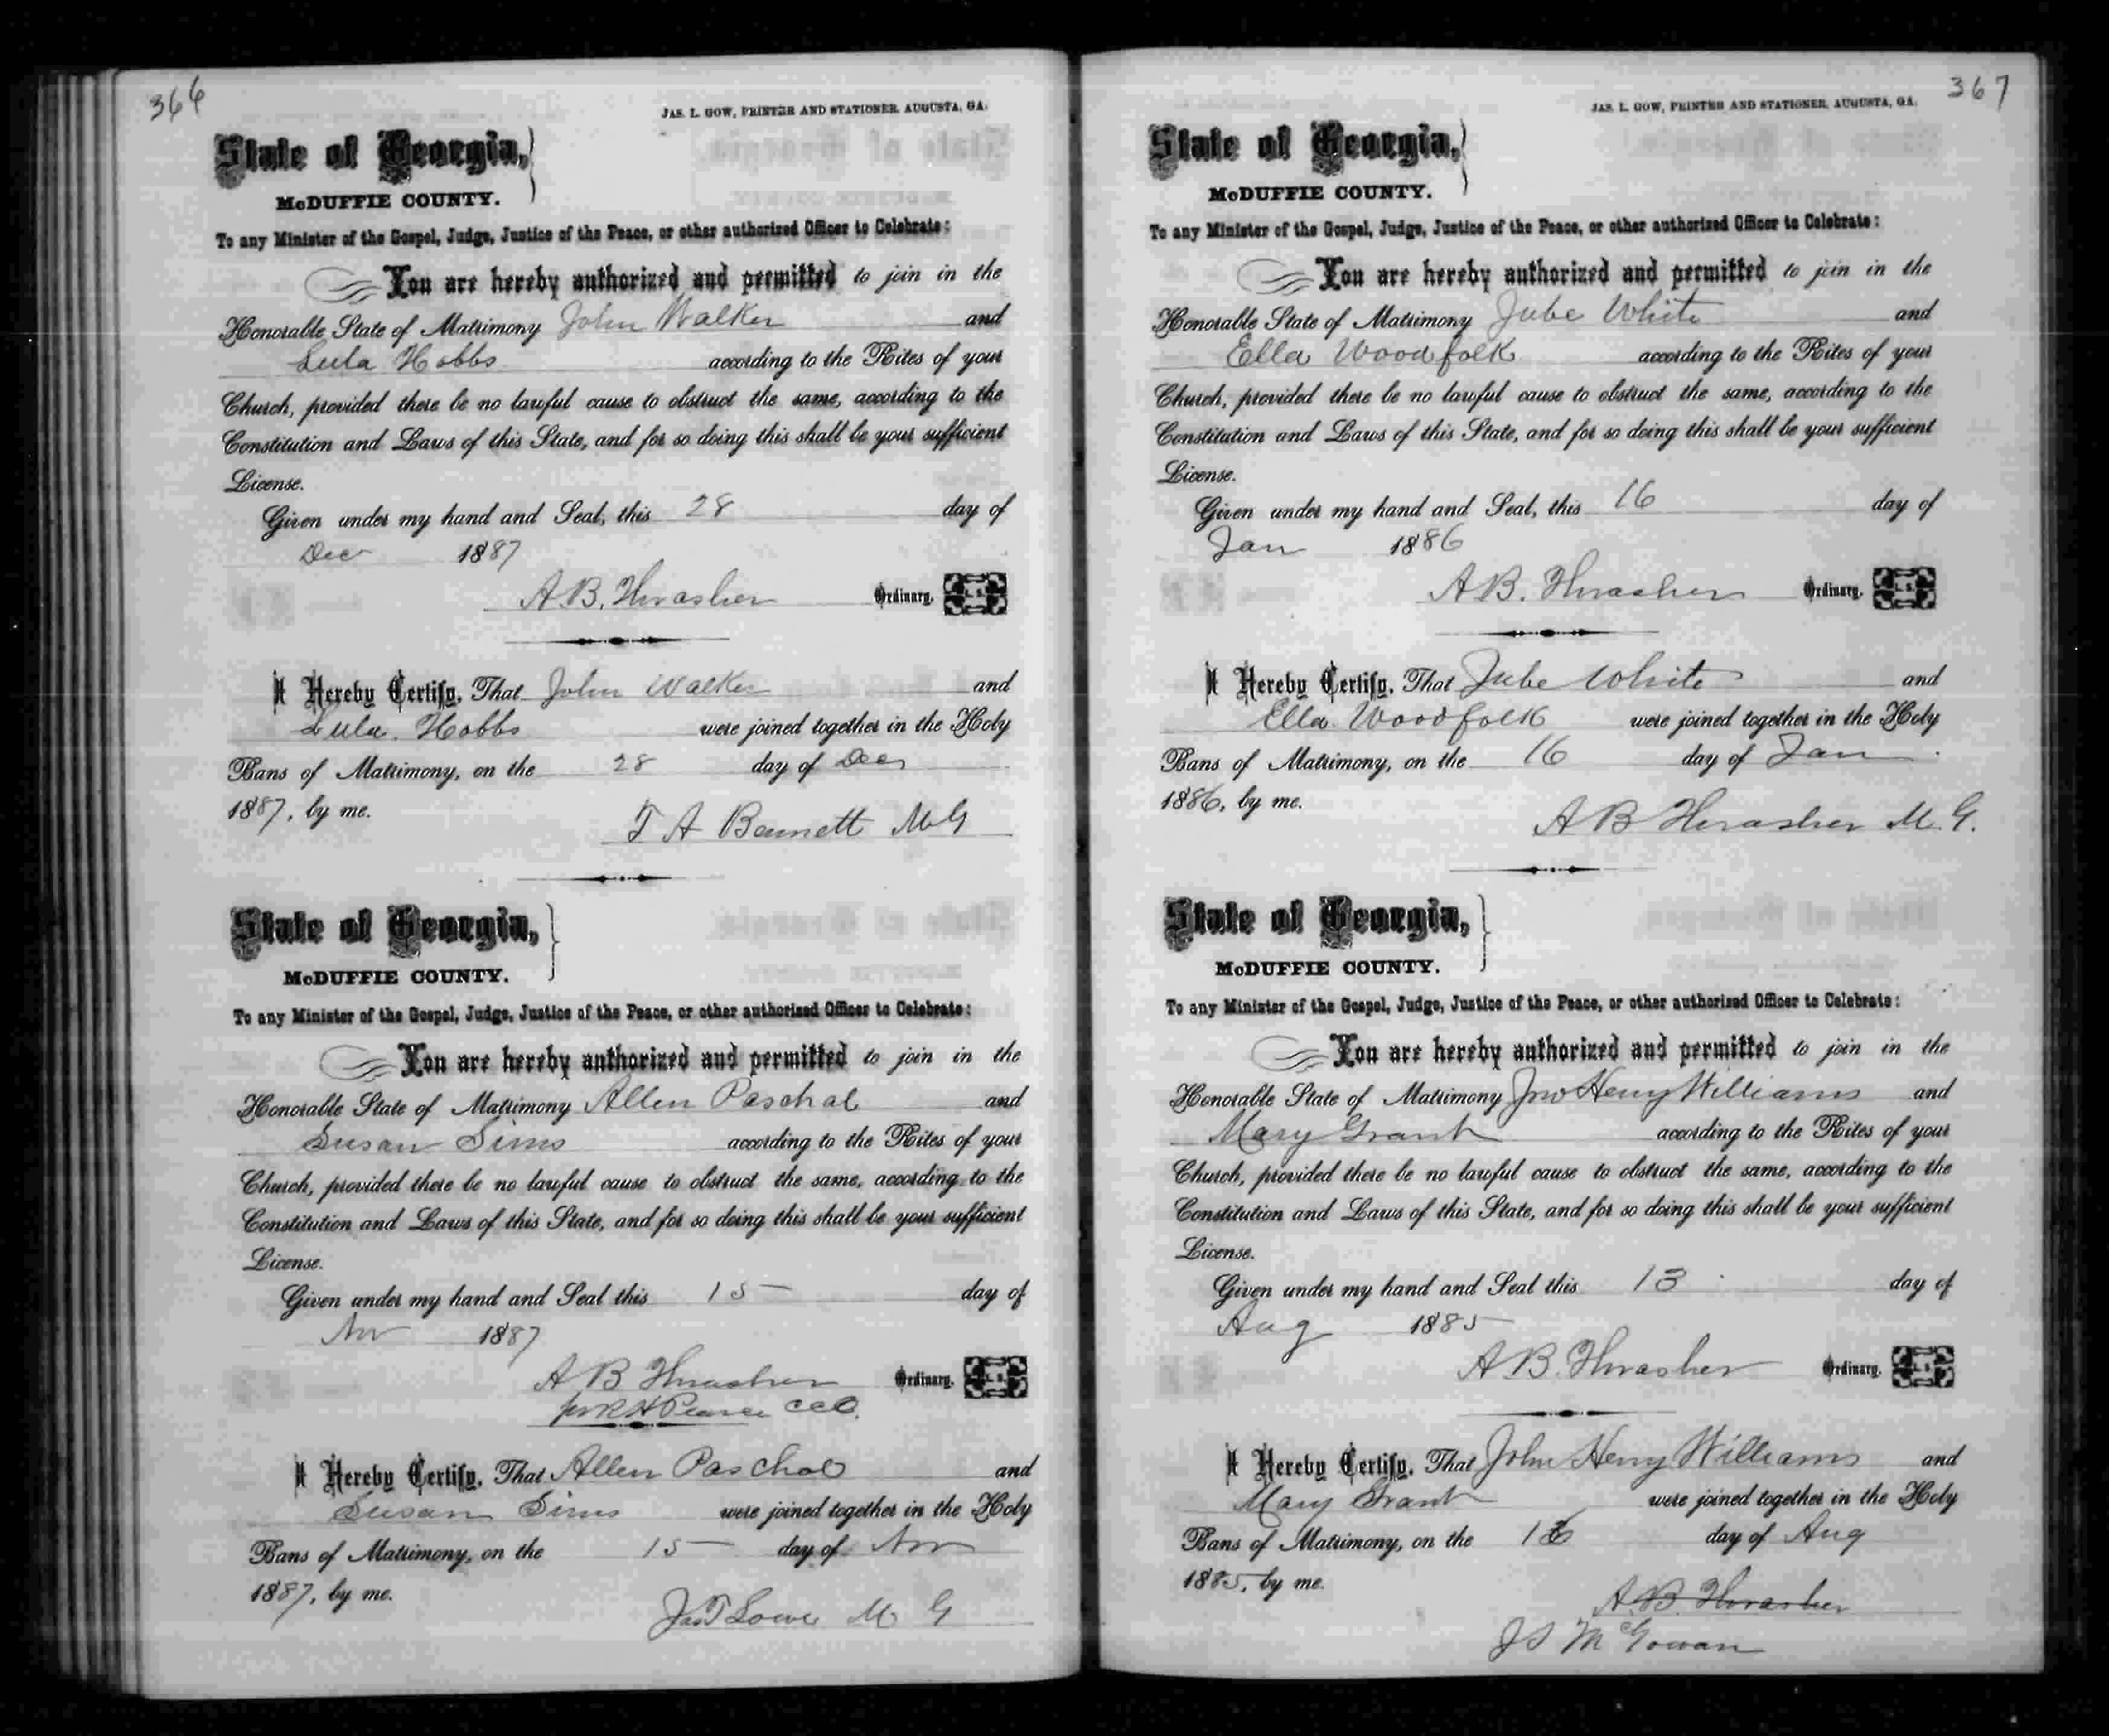 366
JAS. L. GOW, PRINTER AND STATIONER, AUGUSTA, GA.
State of Georgia,
McDUFFIE COUNTY.
To any Minister of the Gospel, Judge, Justice of the Peace, or other authorized Officer to Celebrate:
You are hereby authorized and permitted to join in the
Honorable State of Matrimony John Walker and
Lula Hobbs according to the Rites of your
Church, provided there be no lawful cause to obstruct the same, according to the
Constitution and Laws of this State, and for so doing this shall be your sufficient
License.
Given under my hand and Seal, this 28 day of
Dec 1887
A.B. Thrasher Ordinary. L.S.
I Hereby Certify, That John Walker and
Lula Hobbs were joined together in the Holy
Bans of Matrimony, on the 28 day of Dec
1887, by me.
T A Barnett M G
State of Georgia,
McDUFFIE COUNTY.
To any Minister of the Gospel, Judge, Justice of the Peace, or other authorized Officer to Celebrate:
You are hereby authorized and permitted to join in the
Honorable State of Matrimony Allen Paschal and
Susan Sims according to the Rites of your
Church, provided there be no lawful cause to obstruct the same, according to the
Constitution and Laws of this State, and for so doing this shall be your sufficient
License.
Given under my hand and Seal this 15 day of
Nov 1887
A B Thrasher Ordinary. L.S.
R H Pearce CCO.
I Hereby Certify, That Allen Paschal and
Susan Sims were joined together in the Holy
Bans of Matrimony, on the 15 day of Nov
1887, by me.
Jas T Lowe M G
367
JAS. L. GOW, PRINTER AND STATIONER, AUGUSTA, GA.
State of Georgia,
McDUFFIE COUNTY.
To any Minister of the Gospel, Judge, Justice of the Peace, or other authorized Officer to Celebrate:
You are hereby authorized and permitted to join in the
Honorable State of Matrimony Jube White and
Ella Woodfolk according to the Rites of your
Church, provided there be no lawful cause to obstruct the same, according to the
Constitution and Laws of this State, and for so doing this shall be your sufficient
License.
Given under my hand and Seal, this 16 day of
Jan 1886
A B. Thrasher Ordinary. L.S.
I Hereby Certify, That Jube White and
Ella Woodfolk were joined together in the Holy
Bans of Matrimony, on the 16 day of Jan
1886, by me.
A B Thrasher M. G.
State of Georgia,
McDUFFIE COUNTY.
To any Minister of the Gospel, Judge, Justice of the Peace, or other authorized Officer to Celebrate:
You are hereby authorized and permitted to join in the
Honorable State of Matrimony Jno Henry Williams and
Mary Grant according to the Rites of your
Church, provided there be no lawful cause to obstruct the same, according to the
Constitution and Laws of this State, and for so doing this shall be your sufficient
License.
Given under my hand and Seal this 13 day of
Aug 1885
A B. Thrasher Ordinary. L.S.
I Hereby Certify, That John Henry Williams and
Mary Grant were joined together in the Holy
Bans of Matrimony, on the 16 day of Aug
1885, by me.
A.B. Thrasher
J S McGowan